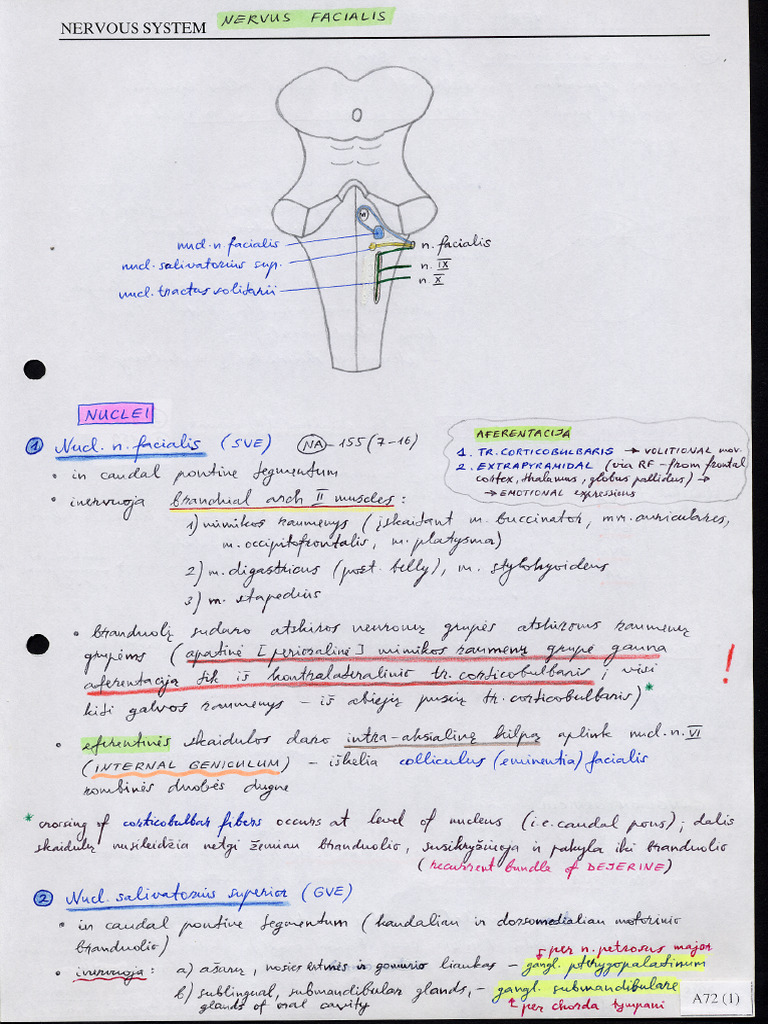 NERVOUS SYSTEM NERVUS FACIALIS
nucl. n. facialis
nucl. salivatorius sup.
nucl. tractus solitarii
VI
n. facialis
n. IX
n. X
NUCLEI
1 Nucl. n. facialis (SVE) NA - 155 (7-16)
AFERENTACIJA
1. TR. CORTICOBULBARIS → VOLITIONAL mov.
2. EXTRAPYRAMIDAL (via RF - from frontal
cortex, thalamus, globus pallidus) →
→ EMOTIONAL expressions
• in caudal pontine tegmentum
• inervuoja branchial arch II muscles:
1) mimikos raumenys (įskaitant m. buccinator, mm. auriculares,
m. occipitofrontalis, m. platysma)
2) m. digastricus (post. belly), m. stylohyoideus
3) m. stapedius
• branduolį sudaro atskiros neuronų grupės atskiroms raumenų
grupėms (apatinė [perioralinė] mimikos raumenų grupė gauna
aferentaciją tik iš kontralateralinio tr. corticobulbaris; visi
kiti galvos raumenys - iš abiejų pusių tr. corticobulbaris)*
!
• eferentinės skaidulos daro intra-aksialinę kilpą aplink nucl. n. VI
(INTERNAL GENICULUM) - iškelia colliculus (eminentia) facialis
rombinės duobės dugne
* crossing of corticobulbar fibers occurs at level of nucleus (i.e. caudal pons); dalis
skaidulų nusileidžia netgi žemiau branduolio, susikryžiuoja ir pakyla iki branduolio
(recurrent bundle of DEJERINE)
2 Nucl. salivatorius superior (GVE)
• in caudal pontine tegmentum (kaudaliau ir dorsomedialiau motorinio
branduolio)
↓ per n. petrosus major
• inervuoja: a) ašarų, nosies ertmės ir gomurio liaukas - gangl. pterygopalatinum
b) sublingual, submandibular glands, - gangl. submandibulare
glands of oral cavity ↑ per chorda tympani
A72 (1)